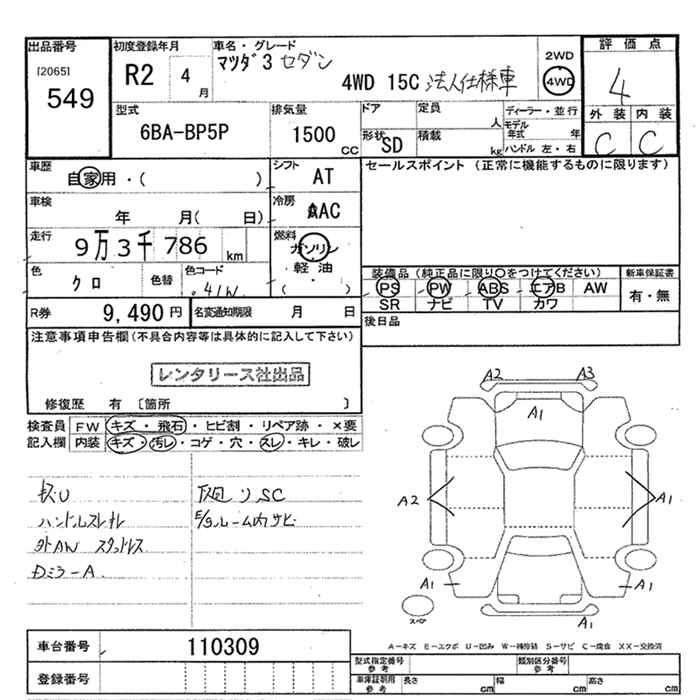 出品番号
[2065]
549
初度登録年月
R2
4
月
車名・グレード
マツダ3 セダン
4WD 15C 法人仕様車
2WD
4WD
評価点
4
外装 内装
C C
型式
6BA-BP5P
排気量
1500
CC
ドア
定員
人
形状
SD
積載
kg
ディーラー・並行
モデル
年式 年
ハンドル 左・右
車歴
自家用・( )
シフト
AT
セールスポイント (正常に機能するものに限ります)
車検
年 月( 日)
冷房
AAC
走行
9万3千786
km
燃料
ガソリン
軽油
( ・ )
色
クロ
色替
色コード
41W
装備品(純正品に限り○をつけてください)
新車保証書
PS PW ABS エアB AW
有・無
SR ナビ TV カワ
R券
9,490円
名変通知期限
月 日
後日品
注意事項申告欄(不具合内容等は具体的に記入して下さい)
レンタリース社出品
修復歴 有 〔箇所 〕
検査員
記入欄
FW
キズ・飛石・ヒビ割・リペア跡・×要
内装
キズ・汚レ・コゲ・穴・スレ・キレ・破レ
下廻りSC
ハンドルスレキレ
E/gルーム内サビ
外AW スタッドレス
Dミラ-A
A2 A3
A1
A2
A1
A1
A1
A1
スペア
A-キズ E-エクボ U-凹み W-補修跡 S-サビ C-腐食 XX-交換済
車台番号
110309
登録番号
型式指定番号
参考
類別区分番号
参考
車庫証明用
参考
長さ
cm
幅
cm
高さ
cm